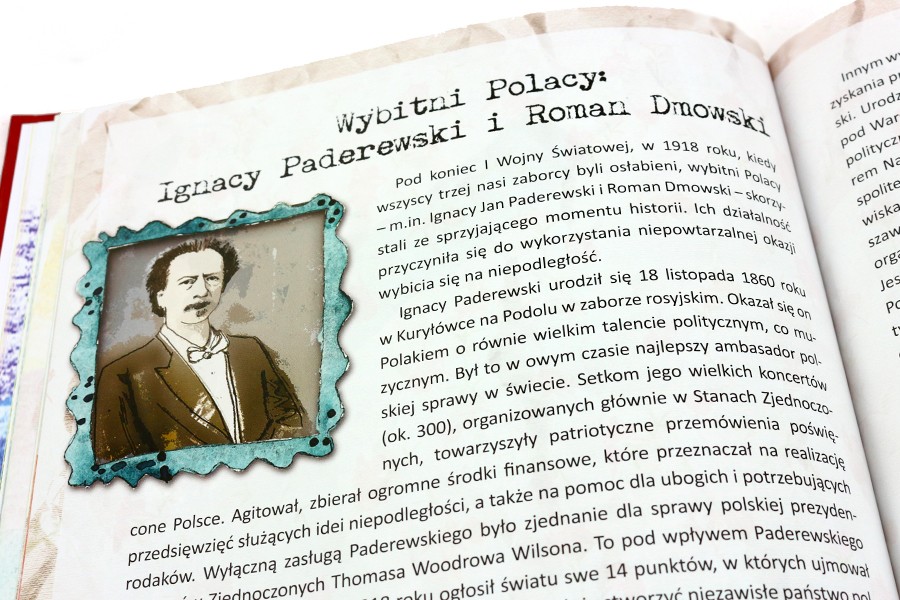 Wybitni Polacy:
Ignacy Paderewski i Roman Dmowski
Pod koniec I Wojny Światowej, w 1918 roku, kiedy
wszyscy trzej nasi zaborcy byli osłabieni, wybitni Polacy
– m.in. Ignacy Jan Paderewski i Roman Dmowski – skorzy-
stali ze sprzyjającego momentu historii. Ich działalność
przyczyniła się do wykorzystania niepowtarzalnej okazji
wybicia się na niepodległość.
Ignacy Paderewski urodził się 18 listopada 1860 roku
w Kuryłówce na Podolu w zaborze rosyjskim. Okazał się on
Polakiem o równie wielkim talencie politycznym, co mu-
zycznym. Był to w owym czasie najlepszy ambasador pol-
skiej sprawy w świecie. Setkom jego wielkich koncertów
(ok. 300), organizowanych głównie w Stanach Zjednoczo-
nych, towarzyszyły patriotyczne przemówienia poświę-
cone Polsce. Agitował, zbierał ogromne środki finansowe, które przeznaczał na realizację
przedsięwzięć służących idei niepodległości, a także na pomoc dla ubogich i potrzebujących
rodaków. Wyłączną zasługą Paderewskiego było zjednanie dla sprawy polskiej prezyden-
Zjednoczonych Thomasa Woodrowa Wilsona. To pod wpływem Paderewskiego
roku ogłosił światu swe 14 punktów, w których ujmował
niezawisłe państwo pol
Innym
zyskania
ski. Urodz
pod War
polityczn
rem Na
spolite
wiska
szaw
orga
Jes
Po